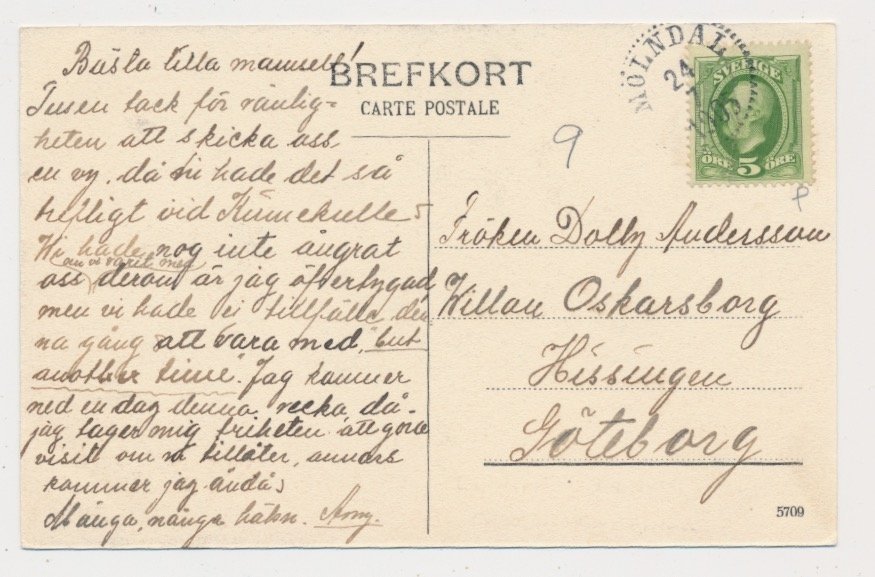 Bästa lilla mamsell!
Tusen tack för vänlig=
heten att skicka oss
en vy, då ni hade det så
heftigt vid Kinnekulle
Vi hade nog inte ångrat
om vi varit med
oss derom är jag öfvertygad
men vi hade ej tillfälle den
na gång att vara med, "but
another time". Jag kommer
ned en dag denna vecka, då
jag tager mig friheten att göra
visit om ni tillåter, annars
kommer jag ändå
Många, många hälsn. Amy.
BREFKORT
CARTE POSTALE
MÖLNDAL
24
SVERIGE
ÖRE 5 ÖRE
9
Fröken Dolly Andersson
Willan Oskarsborg
Hissingen
Göteborg
5709